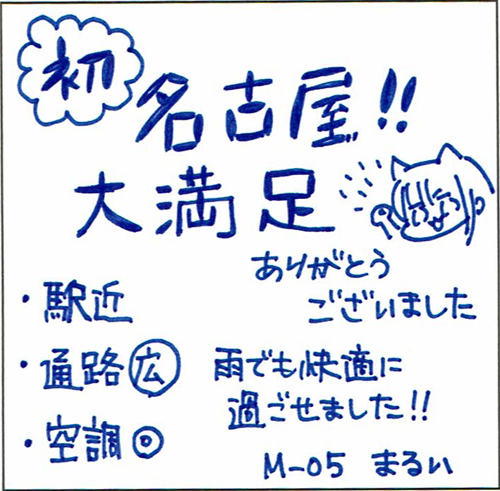 初
名古屋!!
大満足
ありがとう
ございました
・駅近
・通路広
・空調◎
雨でも快適に
過ごせました!!
M-05 まるい